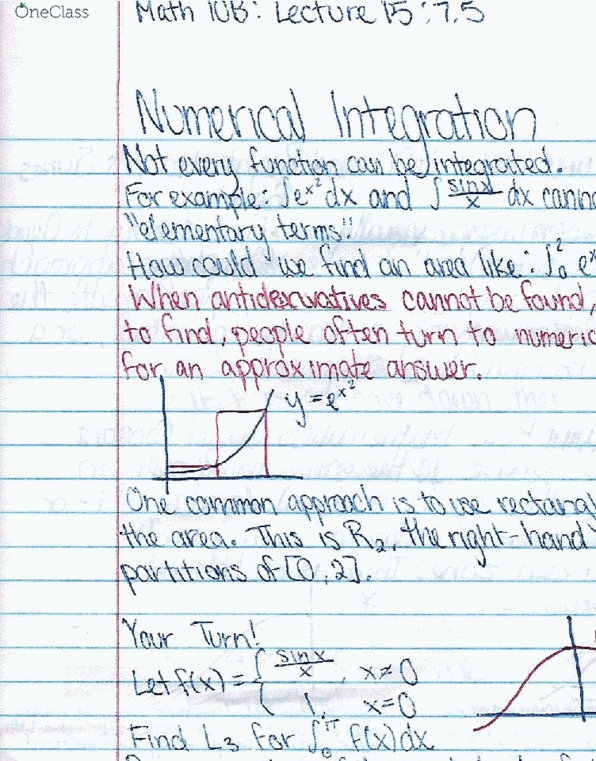 OneClass
Math 10B: Lecture 15: 7.5
Numerical Integration
Not every function can be integrated.
For example: ∫e^x² dx and ∫ sinx/x dx cann
"elementary terms".
How could we find an area like: ∫₀² e^x
When antiderivatives cannot be found,
to find, people often turn to numeric
for an approximate answer.
y = e^x²
One common approach is to use rectangl
the area. This is R₂, the right-hand
partitions of [0,2].
Your Turn!
Let f(x) = { sinx/x, x≠0
1, x=0
Find L₃ for ∫₀^π f(x)dx.